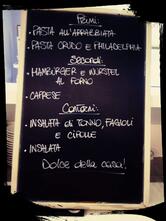 Primi:
• PASTA ALL'ARRABBIATA
• PASTA CRUDO E PHILADELPHIA
Secondi:
• HAMBURGER E WURSTEL
AL FORNO
• CAPRESE
Contorni:
• INSALATA di TONNO, FAGIOLI
E CIPOLLE
• INSALATA
Dolce della casa!